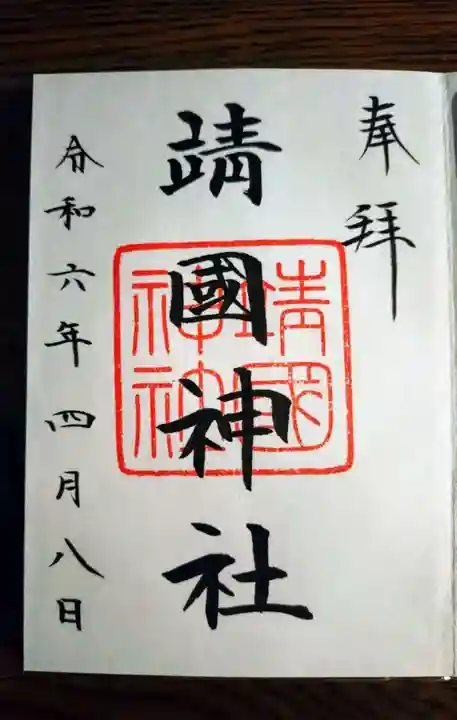 奉拝
靖國神社
靖國
神社
令和六年四月八日